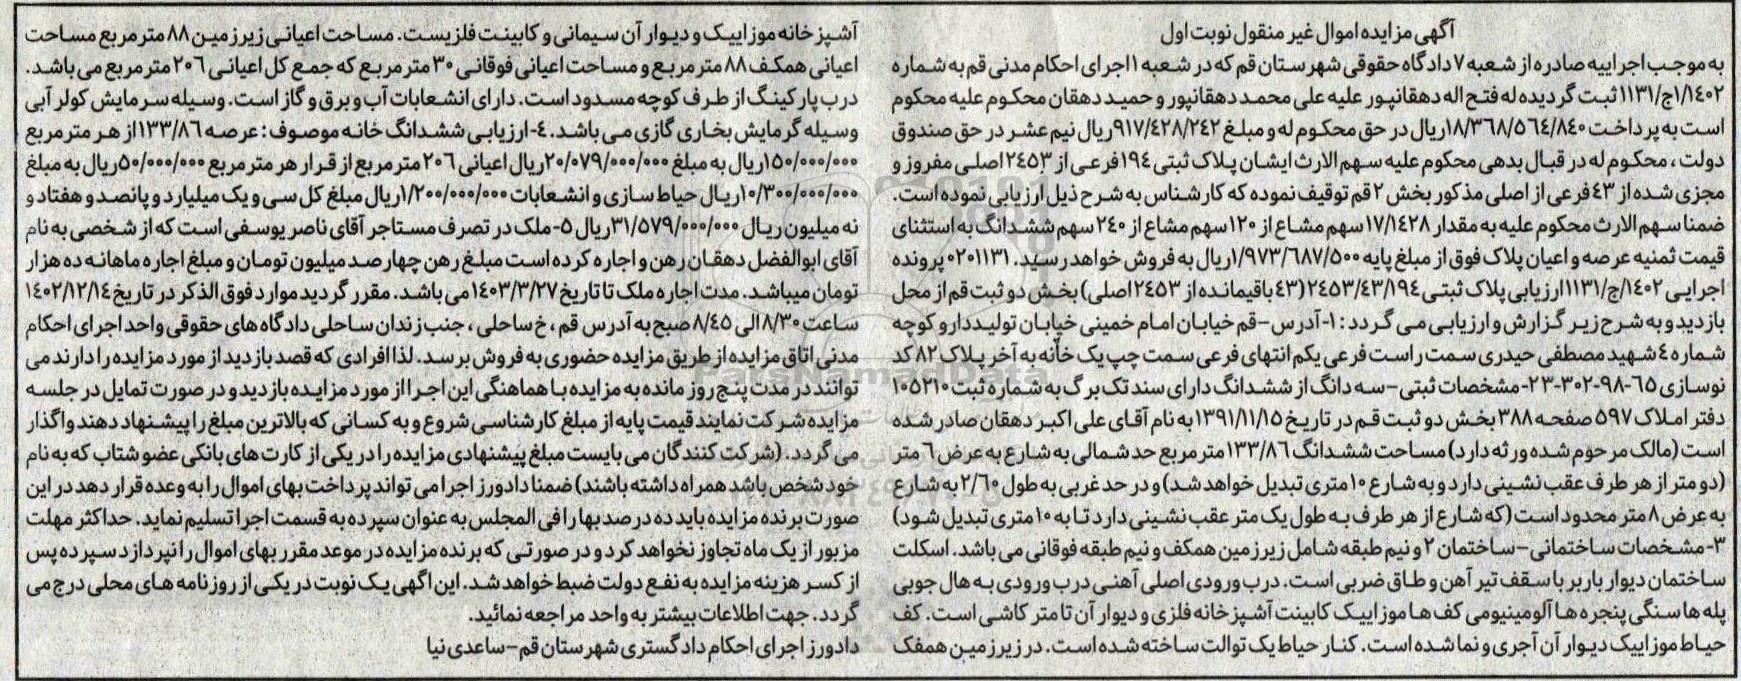 آگهی مزایده اموال غیر منقول نوبت اول
به موجب اجراییه صادره از شعبه ۷ دادگاه حقوقی شهرستان قم که در شعبه ۱ اجرای احکام مدنی قم به شماره
۱/۱۴۰۲ج/۱۱۳۱ ثبت گردیده له فتح اله دهقانپور علیه علی محمد دهقانپور و حمید دهقان محکوم علیه محکوم
است به پرداخت ۱۸/۳۶۸/۵٦٤/۸٤۰ریال در حق محکوم له و مبلغ ۹۱۷/٤۲۸/۲٤۲ریال نیم عشر در حق صندوق
دولت، محکوم له در قبال بدهی محکوم علیه سهم الارث ایشان پلاک ثبتی ۱۹٤ فرعی از ۲٤۵۳ اصلی مفروز و
مجزی شده از ٤۳ فرعی از اصلی مذکور بخش ۲ قم توقیف نموده که کارشناس به شرح ذیل ارزیابی نموده است.
ضمنا سهم الارث محکوم علیه به مقدار ۱۷/۱٤۲۸ سهم مشاع از ۱۲۰ سهم مشاع از ۲٤۰ سهم ششدانگ به استثنای
قیمت ثمنیه عرصه و اعیان پلاک فوق از مبلغ پایه ۱/۹۷۳/٦۸۷/۵۰۰ریال به فروش خواهد رسید. ۰۲۰۱۱۳۱ پرونده
اجرایی ۱/۱٤۰۲ج/۱۱۳۱ ارزیابی پلاک ثبتی ۲٤۵۳/٤۳/۱۹٤ (٤۳ باقیمانده از ۲٤۵۳ اصلی) بخش دو ثبت قم از محل
بازدید و به شرح زیر گزارش و ارزیابی می گردد: ۱- آدرس – قم خیابان امام خمینی خیابان تولیددارو کوچه
شماره ٤ شهید مصطفی حیدری سمت راست فرعی یکم انتهای فرعی سمت چپ یک خانه به آخر پلاک ۸۲ کد
نوسازی ٦۵-۹۸-۳۰۲-۲۳-مشخصات ثبتی – سه دانگ از ششدانگ دارای سند تک برگ به شماره ثبت ۱۰۵۲۱۰
دفتر املاک ۵۹۷ صفحه ۳۸۸ بخش دو ثبت قم در تاریخ ۱۳۹۱/۱۱/۱۵ به نام آقای علی اکبر دهقان صادر شده
است (مالک مرحوم شده ورثه دارد) مساحت ششدانگ ۱۳۳/۸٦ مترمربع حد شمالی به شارع به عرض ٦ متر
(دو متر از هر طرف عقب نشینی دارد و به شارع ۱۰ متری تبدیل خواهد شد) و در حد غربی به طول ۲/٦۰ به شارع
به عرض ۸ متر محدود است (که شارع از هر طرف به طول یک متر عقب نشینی دارد تا به ۱۰ متری تبدیل شود)
۳- مشخصات ساختمانی – ساختمان ۲ و نیم طبقه شامل زیرزمین همکف و نیم طبقه فوقانی می باشد. اسکلت
ساختمان دیوار باربر با سقف تیرآهن و طاق ضربی است. درب ورودی اصلی آهنی درب ورودی به هال جوبی
پله ها سنگی پنجره ها آلومینیومی کف ها موزاییک کابینت آشپزخانه فلزی و دیوار آن تا متر کاشی است. کف
حیاط موزاییک دیوار آن آجری و نما شده است. کنار حیاط یک توالت ساخته شده است. در زیرزمین همفک
آشپزخانه موزاییک و دیوار آن سیمانی و کابینت فلزیست. مساحت اعیانی زیرزمین ۸۸ مترمربع مساحت
اعیانی همکف ۸۸ مترمربع و مساحت اعیانی فوقانی ۳۰ مترمربع که جمع کل اعیانی ۲۰٦ مترمربع می باشد.
درب پارکینگ از طرف کوچه مسدود است. دارای انشعابات آب و برق و گاز است. وسیله سرمایش کولر آبی
وسیله گرمایش بخاری گازی می باشد. ٤- ارزیابی ششدانگ خانه موصوف: عرصه ۱۳۳/۸٦ از هر مترمربع
۱۵۰/۰۰۰/۰۰۰ریال به مبلغ ۲۰/۰۷۹/۰۰۰/۰۰۰ریال اعیانی ۲۰٦ مترمربع از قرار هر مترمربع ۵۰/۰۰۰/۰۰۰ریال به مبلغ
۱۰/۳۰۰/۰۰۰/۰۰۰ریال حیاط سازی و انشعابات ۱/۲۰۰/۰۰۰/۰۰۰ریال مبلغ کل سی و یک میلیارد و پانصد و هفتاد و
نه میلیون ریال ۳۱/۵۷۹/۰۰۰/۰۰۰ریال ۵- ملک در تصرف مستاجر آقای ناصر یوسفی است که از شخصی به نام
آقای ابوالفضل دهقان رهن و اجاره کرده است مبلغ رهن چهارصد میلیون تومان و مبلغ اجاره ماهانه ده هزار
تومان میباشد. مدت اجاره ملک تا تاریخ ۱٤۰۳/۳/۲۷ می باشد. مقرر گردید موارد فوق الذکر در تاریخ ۱٤۰۲/۱۲/۱٤
ساعت ۸/۳۰ الی ۸/٤۵ صبح به آدرس قم، خ ساحلی، جنب زندان ساحلی دادگاه های حقوقی واحد اجرای احکام
مدنی اتاق مزایده از طریق مزایده حضوری به فروش برسد. لذا افرادی که قصد بازدید از مورد مزایده را دارند می
توانند در مدت پنج روز مانده به مزایده با هماهنگی این اجرا از مورد مزایده بازدید و در صورت تمایل در جلسه
مزایده شرکت نمایند قیمت پایه از مبلغ کارشناسی شروع و به کسانی که بالاترین مبلغ را پیشنهاد دهند واگذار
می گردد. (شرکت کنندگان می بایست مبلغ پیشنهادی مزایده را در یکی از کارت های بانکی عضو شتاب که به نام
خود شخص باشد همراه داشته باشند) ضمنا دادورز اجرا می تواند پرداخت بهای اموال را به وعده قرار دهد در این
صورت برنده مزایده باید ده درصد بها را فی المجلس به عنوان سپرده به قسمت اجرا تسلیم نماید. حداکثر مهلت
مزبور از یک ماه تجاوز نخواهد کرد و در صورتی که برنده مزایده در موعد مقرر بهای اموال را نپردازد سپرده پس
از کسر هزینه مزایده به نفع دولت ضبط خواهد شد. این اگهی یک نوبت در یکی از روزنامه های محلی درج می
گردد. جهت اطلاعات بیشتر به واحد مراجعه نمائید.
دادورز اجرای احکام دادگستری شهرستان قم – ساعدی نیا
ParsNamadData